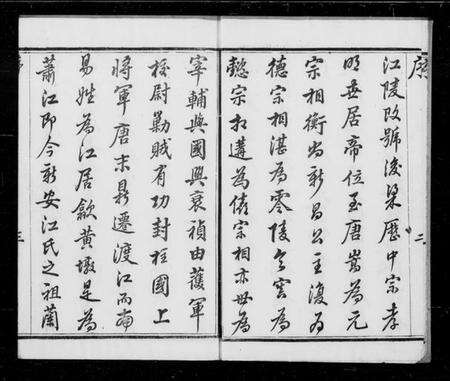 序
二
江陵改號後梁歷中宗孝
明世居帝位至唐嵩為元
宗相衡尚新昌公主復為
德宗相湛為零陵令寘為
懿宗相遘為僖宗相亦世為
宰輔與國興衰禎由護軍
校尉勦賊有功封柱國上
將軍唐末鼎遷渡江而南
易姓為江居歙黃墩是為
蕭江即今新安江氏之祖蘭
三